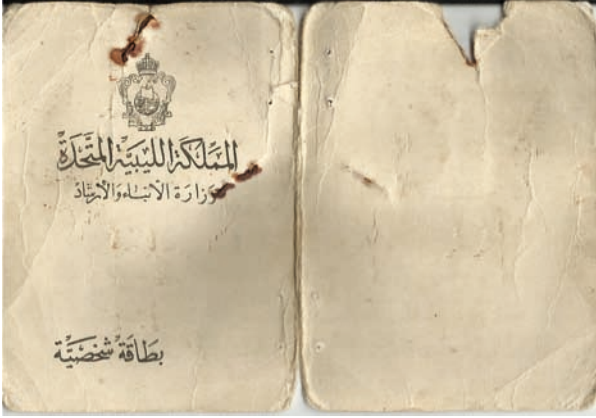 المملكة الليبية المتحدة
وزارة الأنباء والإرشاد
بطاقة شخصية